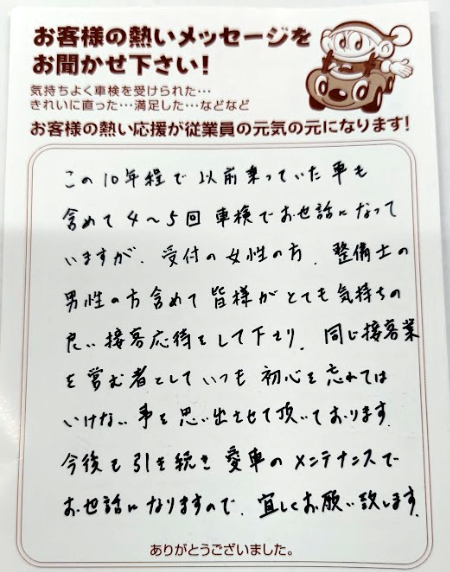 お客様の熱いメッセージを
お聞かせ下さい!
気持ちよく車検を受けられた…
きれいに直った…満足した…などなど
お客様の熱い応援が従業員の元気の元になります!
この10年程で以前乗っていた車も
含めて4〜5回車検でお世話になって
いますが、受付の女性の方、整備士の
男性の方含めて皆様がとても気持ちの
良い接客応待をして下さり、同じ接客業
を営む者としていつも初心を忘れては
いけない事を思い出させて頂いております。
今後も引き続き愛車のメンテナンスで
お世話になりますので、宜しくお願い致します。
ありがとうございました。